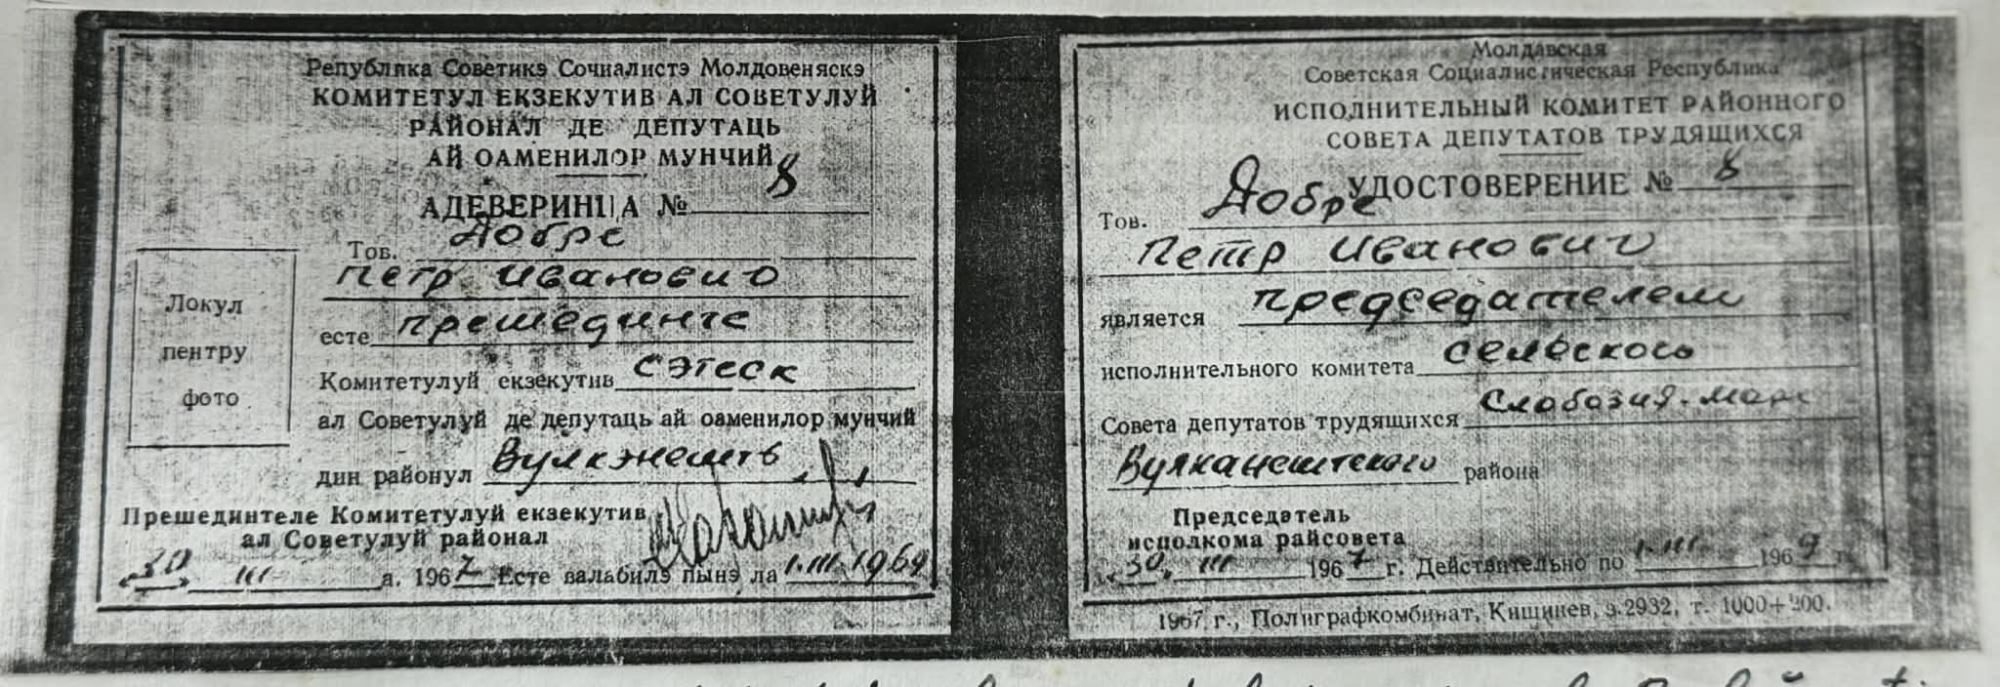 Република Советикэ Сочиалистэ Молдовеняскэ
КОМИТЕТУЛ ЕКЗЕКУТИВ АЛ СОВЕТУЛУЙ
РАЙОНАЛ ДЕ ДЕПУТАЦЬ
АЙ ОАМЕНИЛОР МУНЧИЙ
АДЕВЕРИНЦА № 8
Тов. Добре
Петр Иванович
есте прешединте
Комитетулуй екзекутив сэтеск
ал Советулуй де депутаць ай оаменилор мунчий
дин районул Вулкэнешть
Локул
пентру
фото
Прешединтеле Комитетулуй екзекутив
ал Советулуй районал
30 III а. 1967 Есте валабилэ пынэ ла 1.III.1969
Молдавская
Советская Социалистическая Республика
ИСПОЛНИТЕЛЬНЫЙ КОМИТЕТ РАЙОННОГО
СОВЕТА ДЕПУТАТОВ ТРУДЯЩИХСЯ
УДОСТОВЕРЕНИЕ № 8
Тов. Добре
Петр Иванович
является председателем
исполнительного комитета сельского
Совета депутатов трудящихся Слобозия-Маре
Вулканештского района
Председатель
исполкома райсовета
30. III 1967 г. Действительно по 1.III 1969 г.
1967 г., Полиграфкомбинат, Кишинев, з.2932, т. 1000+200.